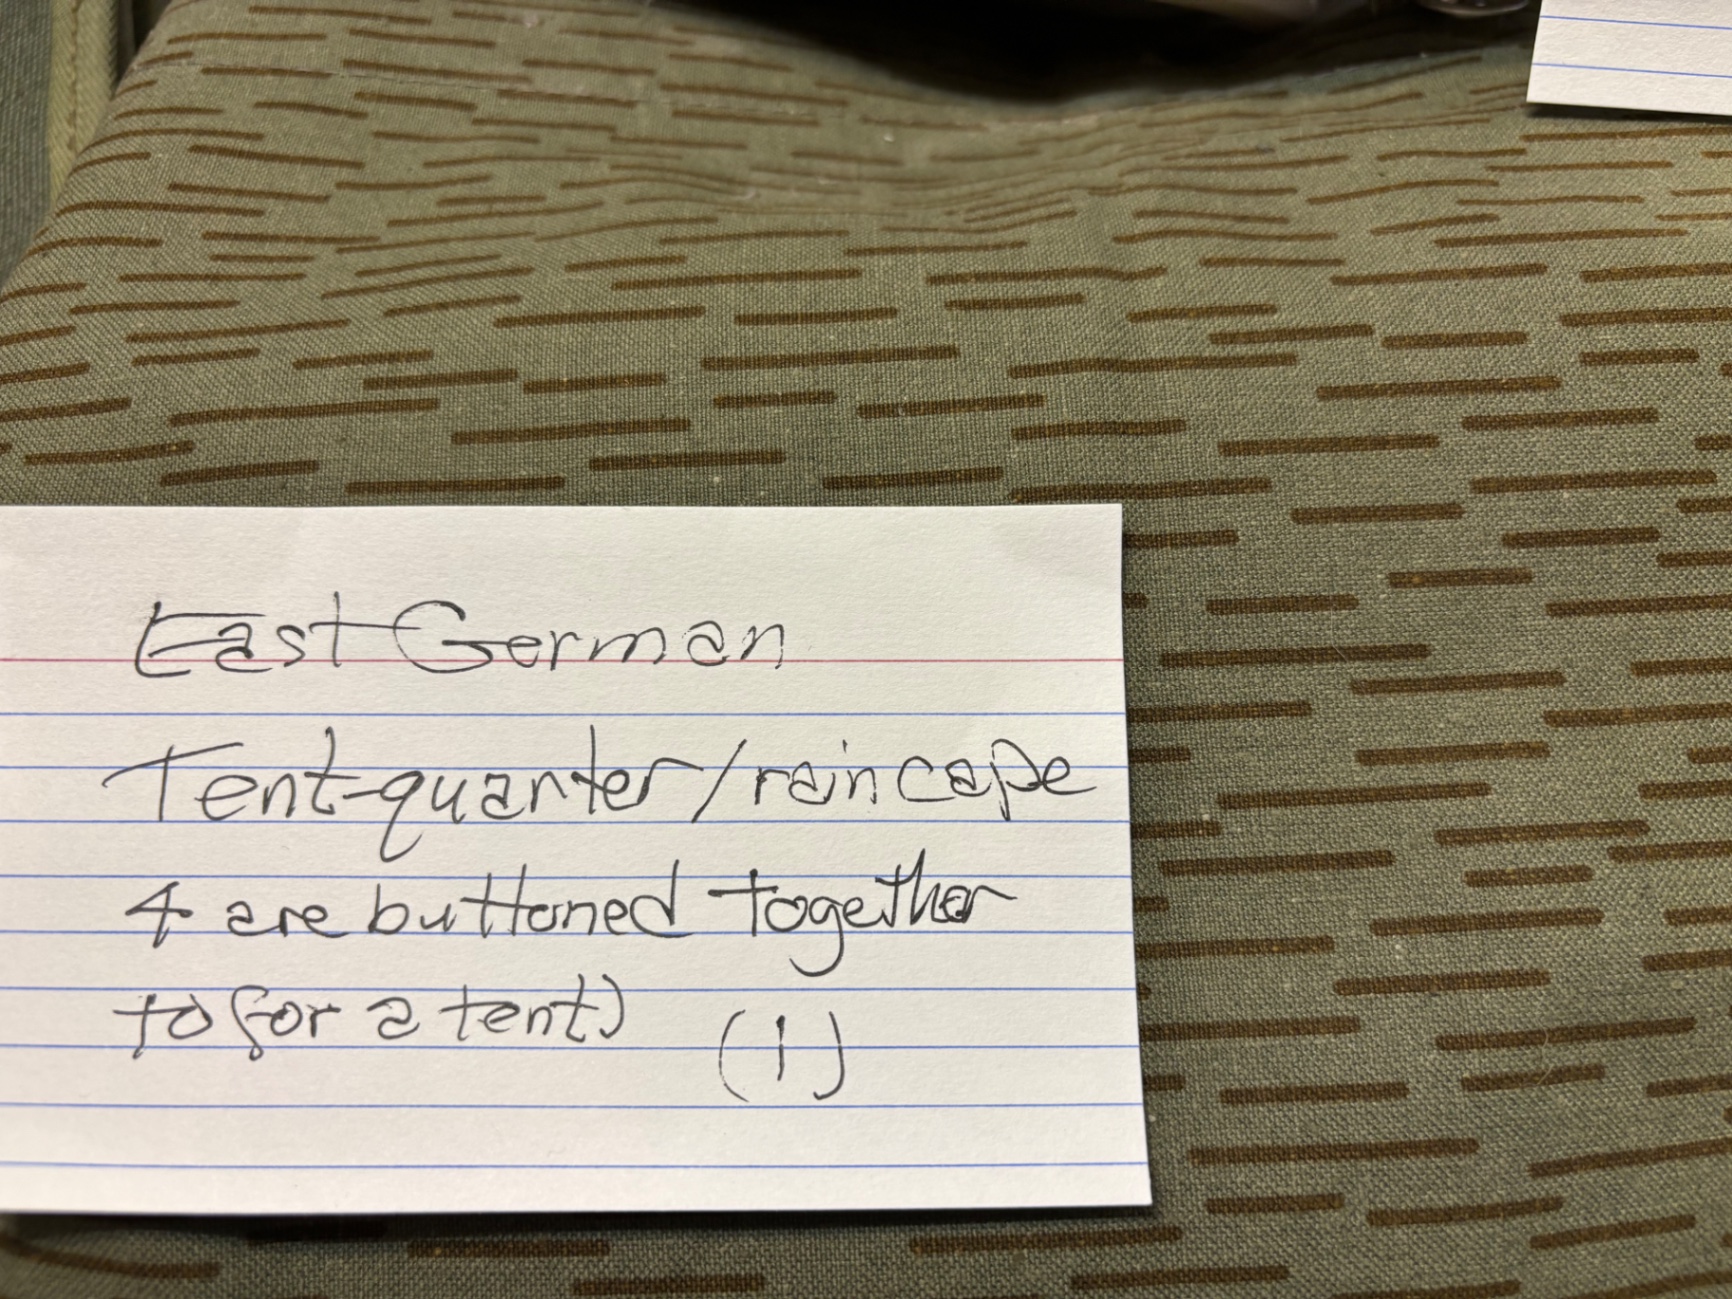 East German
Tent-quarter/rain cape
4 are buttoned together
to for a tent) (1)